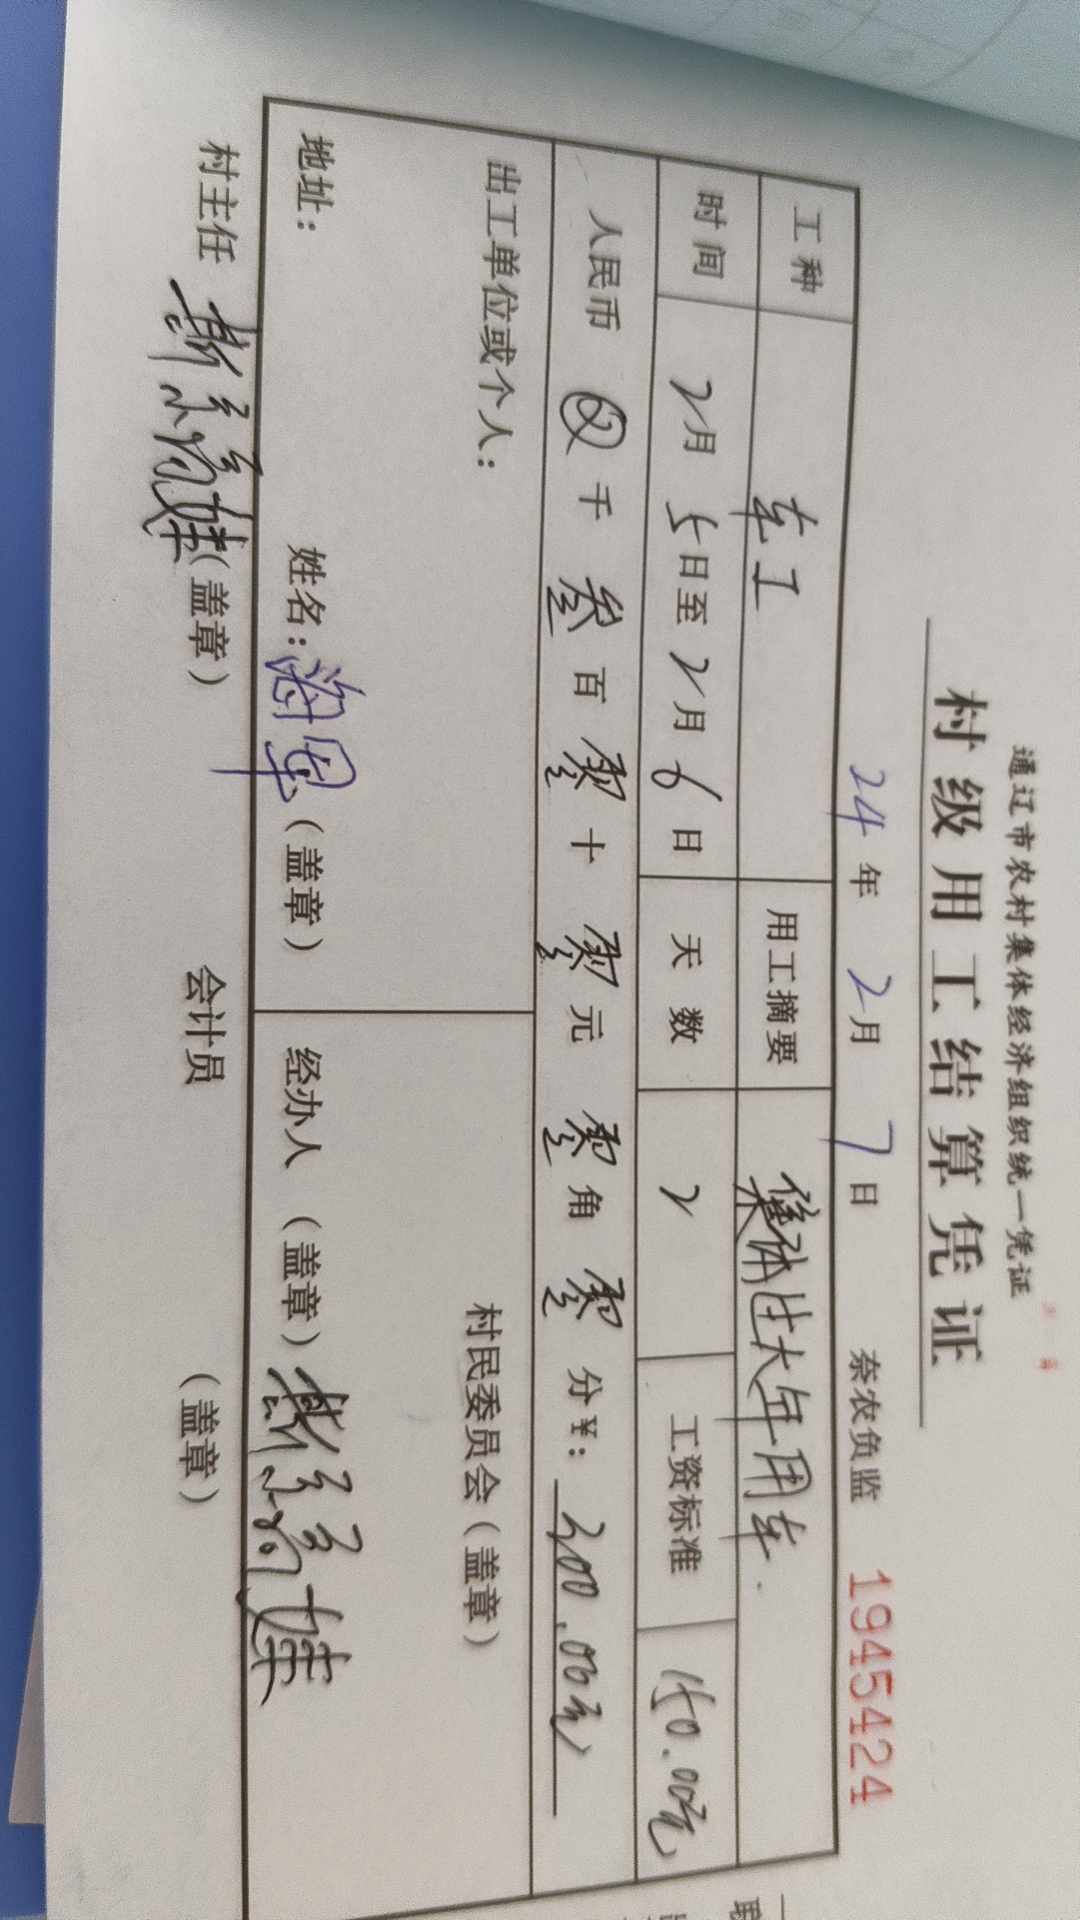 通辽市农村集体经济组织统一凭证
村级用工结算凭证
24年 2月 7日 奈农负监 1945424
工种 车工 用工摘要 集体过大年用车.
时间 2月5日至2月6日 天数 2 工资标准 150.00元
人民币 ⊗ 千 叁 百 零 十 零 元 零 角 零 分¥: 300.00元
出工单位或个人: 村民委员会(盖章)
地址: 姓名: (盖章) 经办人 (盖章)
村主任 (盖章) 会计员 (盖章)